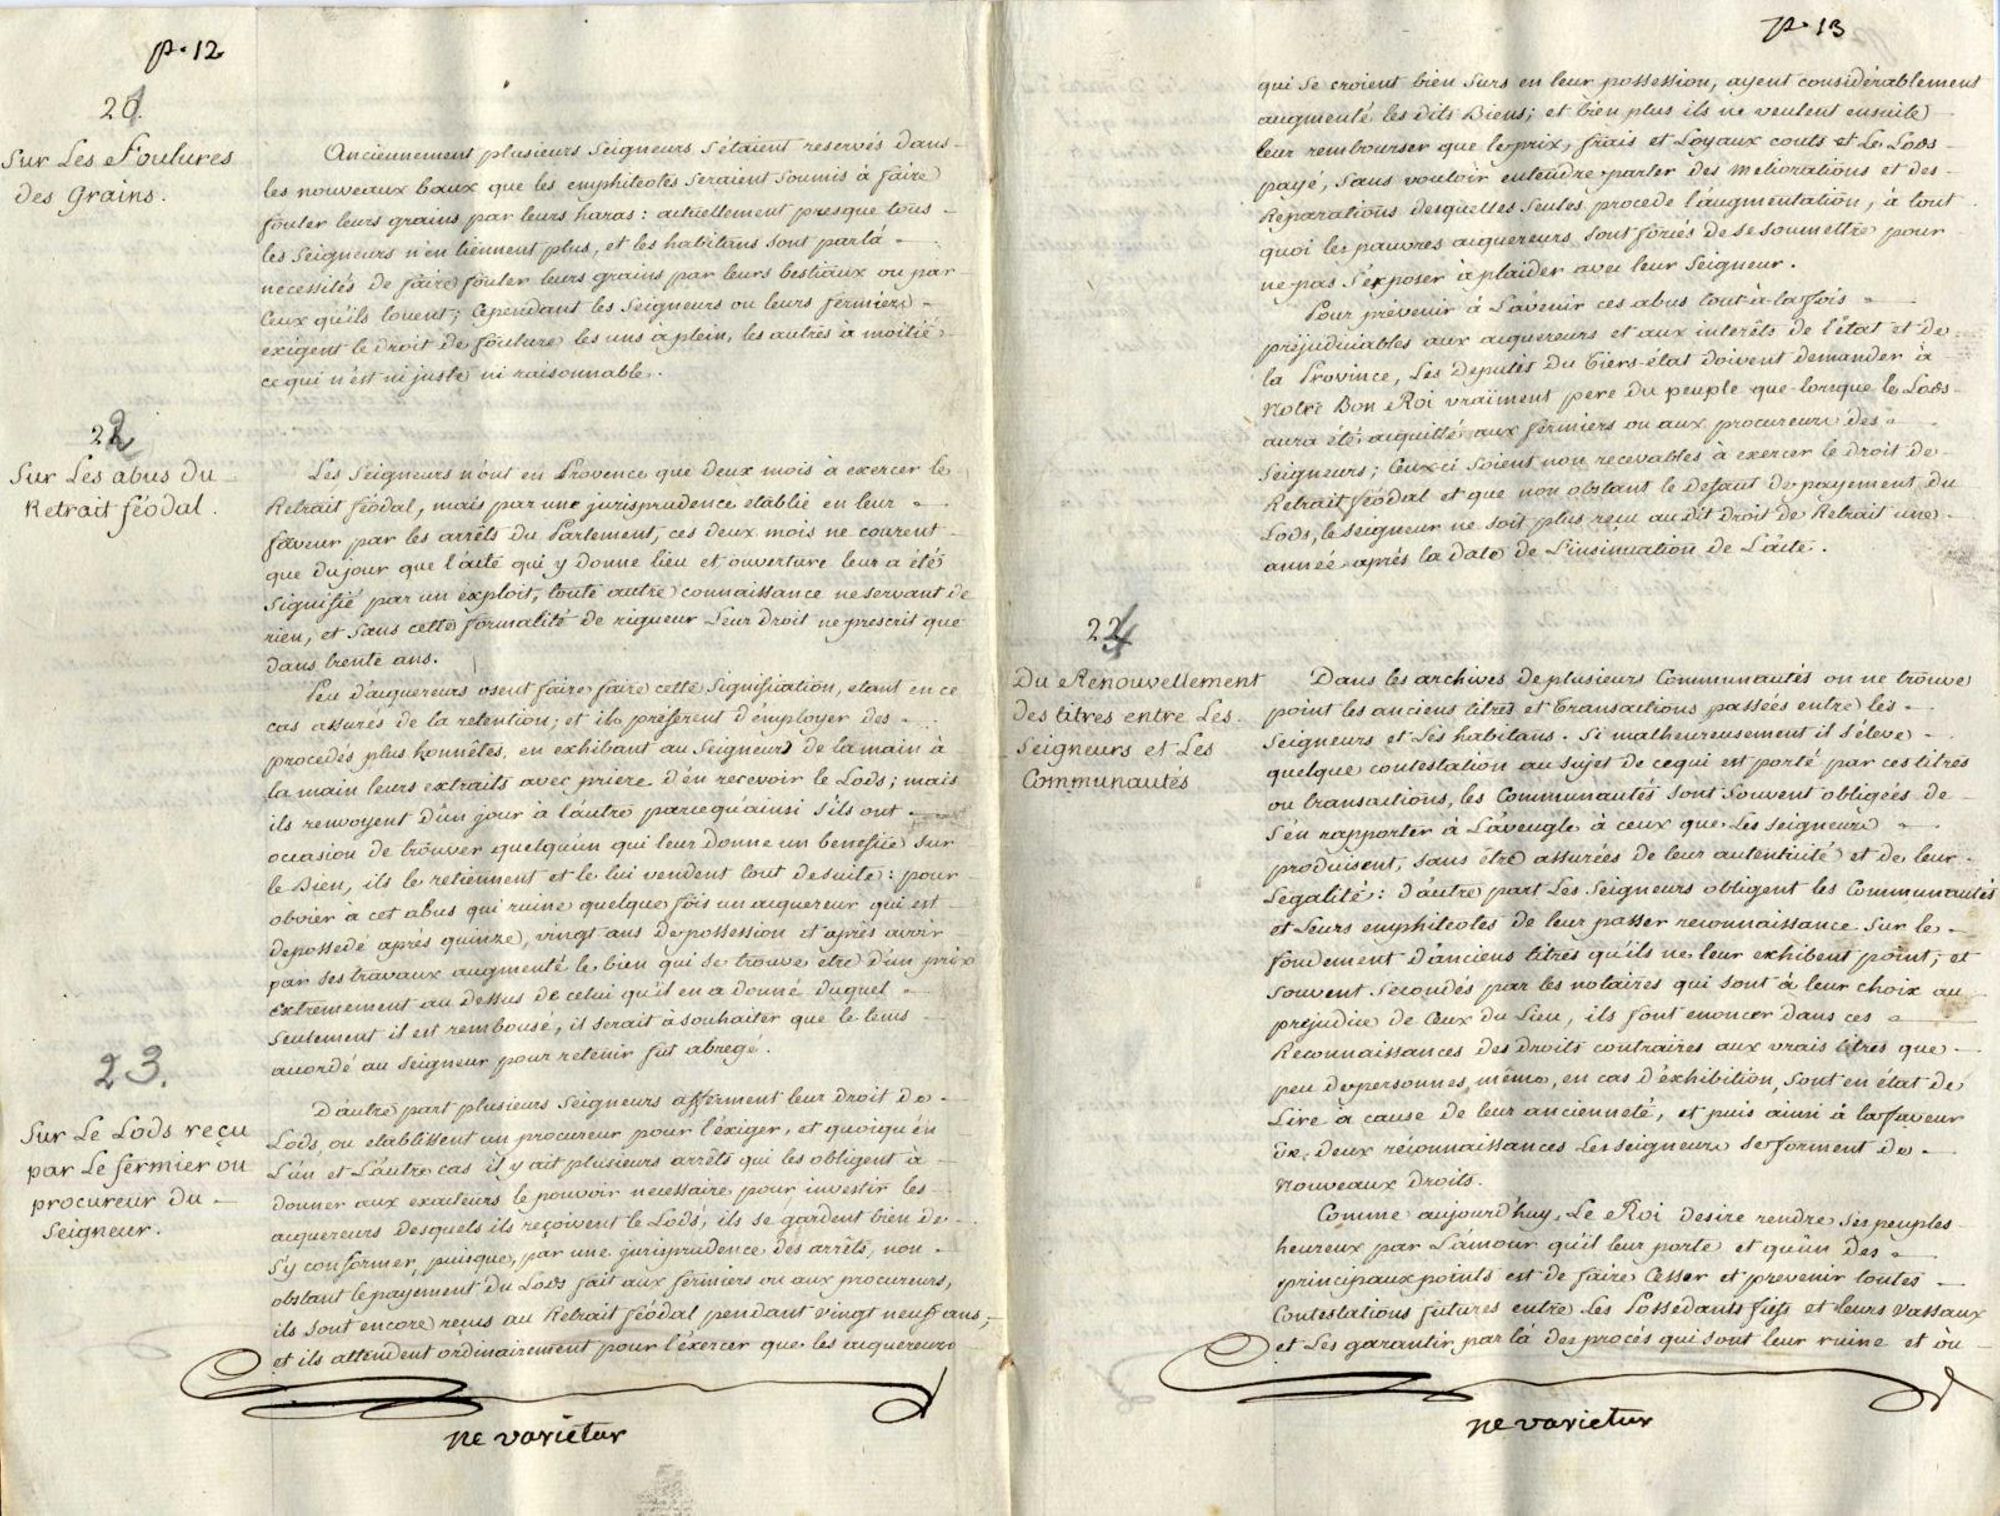 p. 12
21.
Sur Les Foulures
des Grains.
Anciennement plusieurs Seigneurs s'étaient reservés dans
les nouveaux baux que les emphiteotes seraient soumis à faire
fouler leurs grains par leurs haras : actuellement presque tous
les Seigneurs n'en tiennent plus, et les habitans sont par là
necessités de faire fouler leurs grains par leurs bestiaux ou par
Ceux qu'ils louent; Cependant les Seigneurs ou leurs fermiers
exigent le droit de foulure les uns à plein, les autres à moitié
ce qui n'est ni juste ni raisonnable.
22
Sur Les abus du
Retrait féodal.
Les Seigneurs n'ont en Provence que deux mois à exercer le
Retrait féodal, mais par une jurisprudence etablie en leur
faveur par les arrêts du Parlement, ces deux mois ne courent
que du jour que l'acte qui y donne lieu et ouverture leur a été
signifié par un exploit, toute autre connaissance ne servant de
rien, et sans cette formalité de rigueur Leur droit ne prescrit que
dans trente ans.
Peu d'aquereurs osent faire faire cette signification, etant en ce
cas assurés de la retention; et ils préferent d'employer des
procedés plus honnêtes, en exhibant au Seigneur de la main à
la main leurs extraits avec priere d'en recevoir le Lods; mais
ils renvoyent d'un jour à l'autre parce qu'ainsi s'ils ont
occasion de trouver quelqu'un qui leur donne un benefice sur
le Bien, ils le retiennent et le lui vendent tout de suite : pour
obvier à cet abus qui ruine quelque fois un aquereur qui est
depossedé aprés quinze, vingt ans de possession et aprés avoir
par ses travaux augmenté le bien qui se trouve etre d'un prix
extremement au dessus de celui qu'il en a donné duquel
seulement il est rembousé, il serait à souhaiter que le tems
accordé au Seigneur pour retenir fut abregé.
23.
Sur Le Lods reçu
par Le fermier ou
procureur du
Seigneur.
D'autre part plusieurs Seigneurs afferment leur droit de
Lods, ou etablissent un procureur pour l'éxiger, et quoiqu'en
L'un et L'autre cas il y ait plusieurs arrêts qui les obligent à
donner aux exacteurs le pouvoir necessaire pour investir les
aquereurs desquels ils reçoivent le Lods, ils se gardent bien de
s'y conformer, puisque, par une jurisprudence des arrêts, non
obstant le payement du Lods fait aux fermiers ou aux procureurs,
ils sont encore reçus au Retrait féodal pendant vingt neuf ans,
et ils attendent ordinairement pour l'éxercer que les aquereurs
ne varietur
p. 13
qui se croient bien surs en leur possession, ayent considérablement
augmenté les dits Biens; et bien plus ils ne veulent ensuite
leur rembourser que le prix, frais et Loyaux couts et Le Lods
payé, sans vouloir entendre parler des meliorations et des
Reparations desquelles seules procede l'augmentation, à tout
quoi les pauvres aquereurs sont forcés de se soumettre pour
ne pas s'éxposer à plaider avec leur Seigneur.
Pour prévenir à L'avenir ces abus tout-à-la fois
préjudiciables aux aquereurs et aux interêts de l'état et de
la Province, Les Deputés du Tiers-état doivent demander à
Notre Bon Roi vraiment pere du peuple que lorsque le Lods
aura été aquitté aux fermiers ou aux procureurs des
Seigneurs; Ceux-ci soient non recevables à exercer le droit de
Retrait féodal et que non obstant le defaut de payement du
Lods, le seigneur ne soit plus reçu au dit droit de Retrait une
année aprés la date de L'insinuation de L'acte.
24
Du Renouvellement
des titres entre Les
Seigneurs et Les
Communautés
Dans les archives de plusieurs Communautés on ne trouve
point les anciens titres et transactions passées entre les
Seigneurs et Les habitans. Si malheureusement il s'éleve
quelque contestation au sujet de ce qui est porté par ces titres
ou transactions, les Communautés sont souvent obligées de
s'en rapporter à L'aveugle à ceux que Les Seigneurs
produisent, sans être assurées de leur autenticité et de leur
Légalité : d'autre part Les Seigneurs obligent les Communautés
et Leurs emphiteotes de leur passer reconnaissance sur le
fondement d'anciens titres qu'ils ne leur exhibent point; et
souvent secondés par les notaires qui sont à leur choix au
prejudice de Ceux du Lieu, ils font enoncer dans ces
Reconnaissances des droits contraires aux vrais titres que
peu de personnes, même, en cas d'exhibition, sont en état de
Lire à cause de leur ancienneté, et puis ainsi à la faveur
de deux réconnaissances Les seigneurs se forment de
Nouveaux droits.
Comme aujourd'huy, Le Roi desire rendre ses peuples
heureux par L'amour qu'il leur porte et qu'un des
principaux points est de faire Cesser et prevenir toutes
Contestations futures entre Les Possedants fiefs et leurs vassaux
et Les garantir par là des procés qui sont leur ruine et où
ne varietur